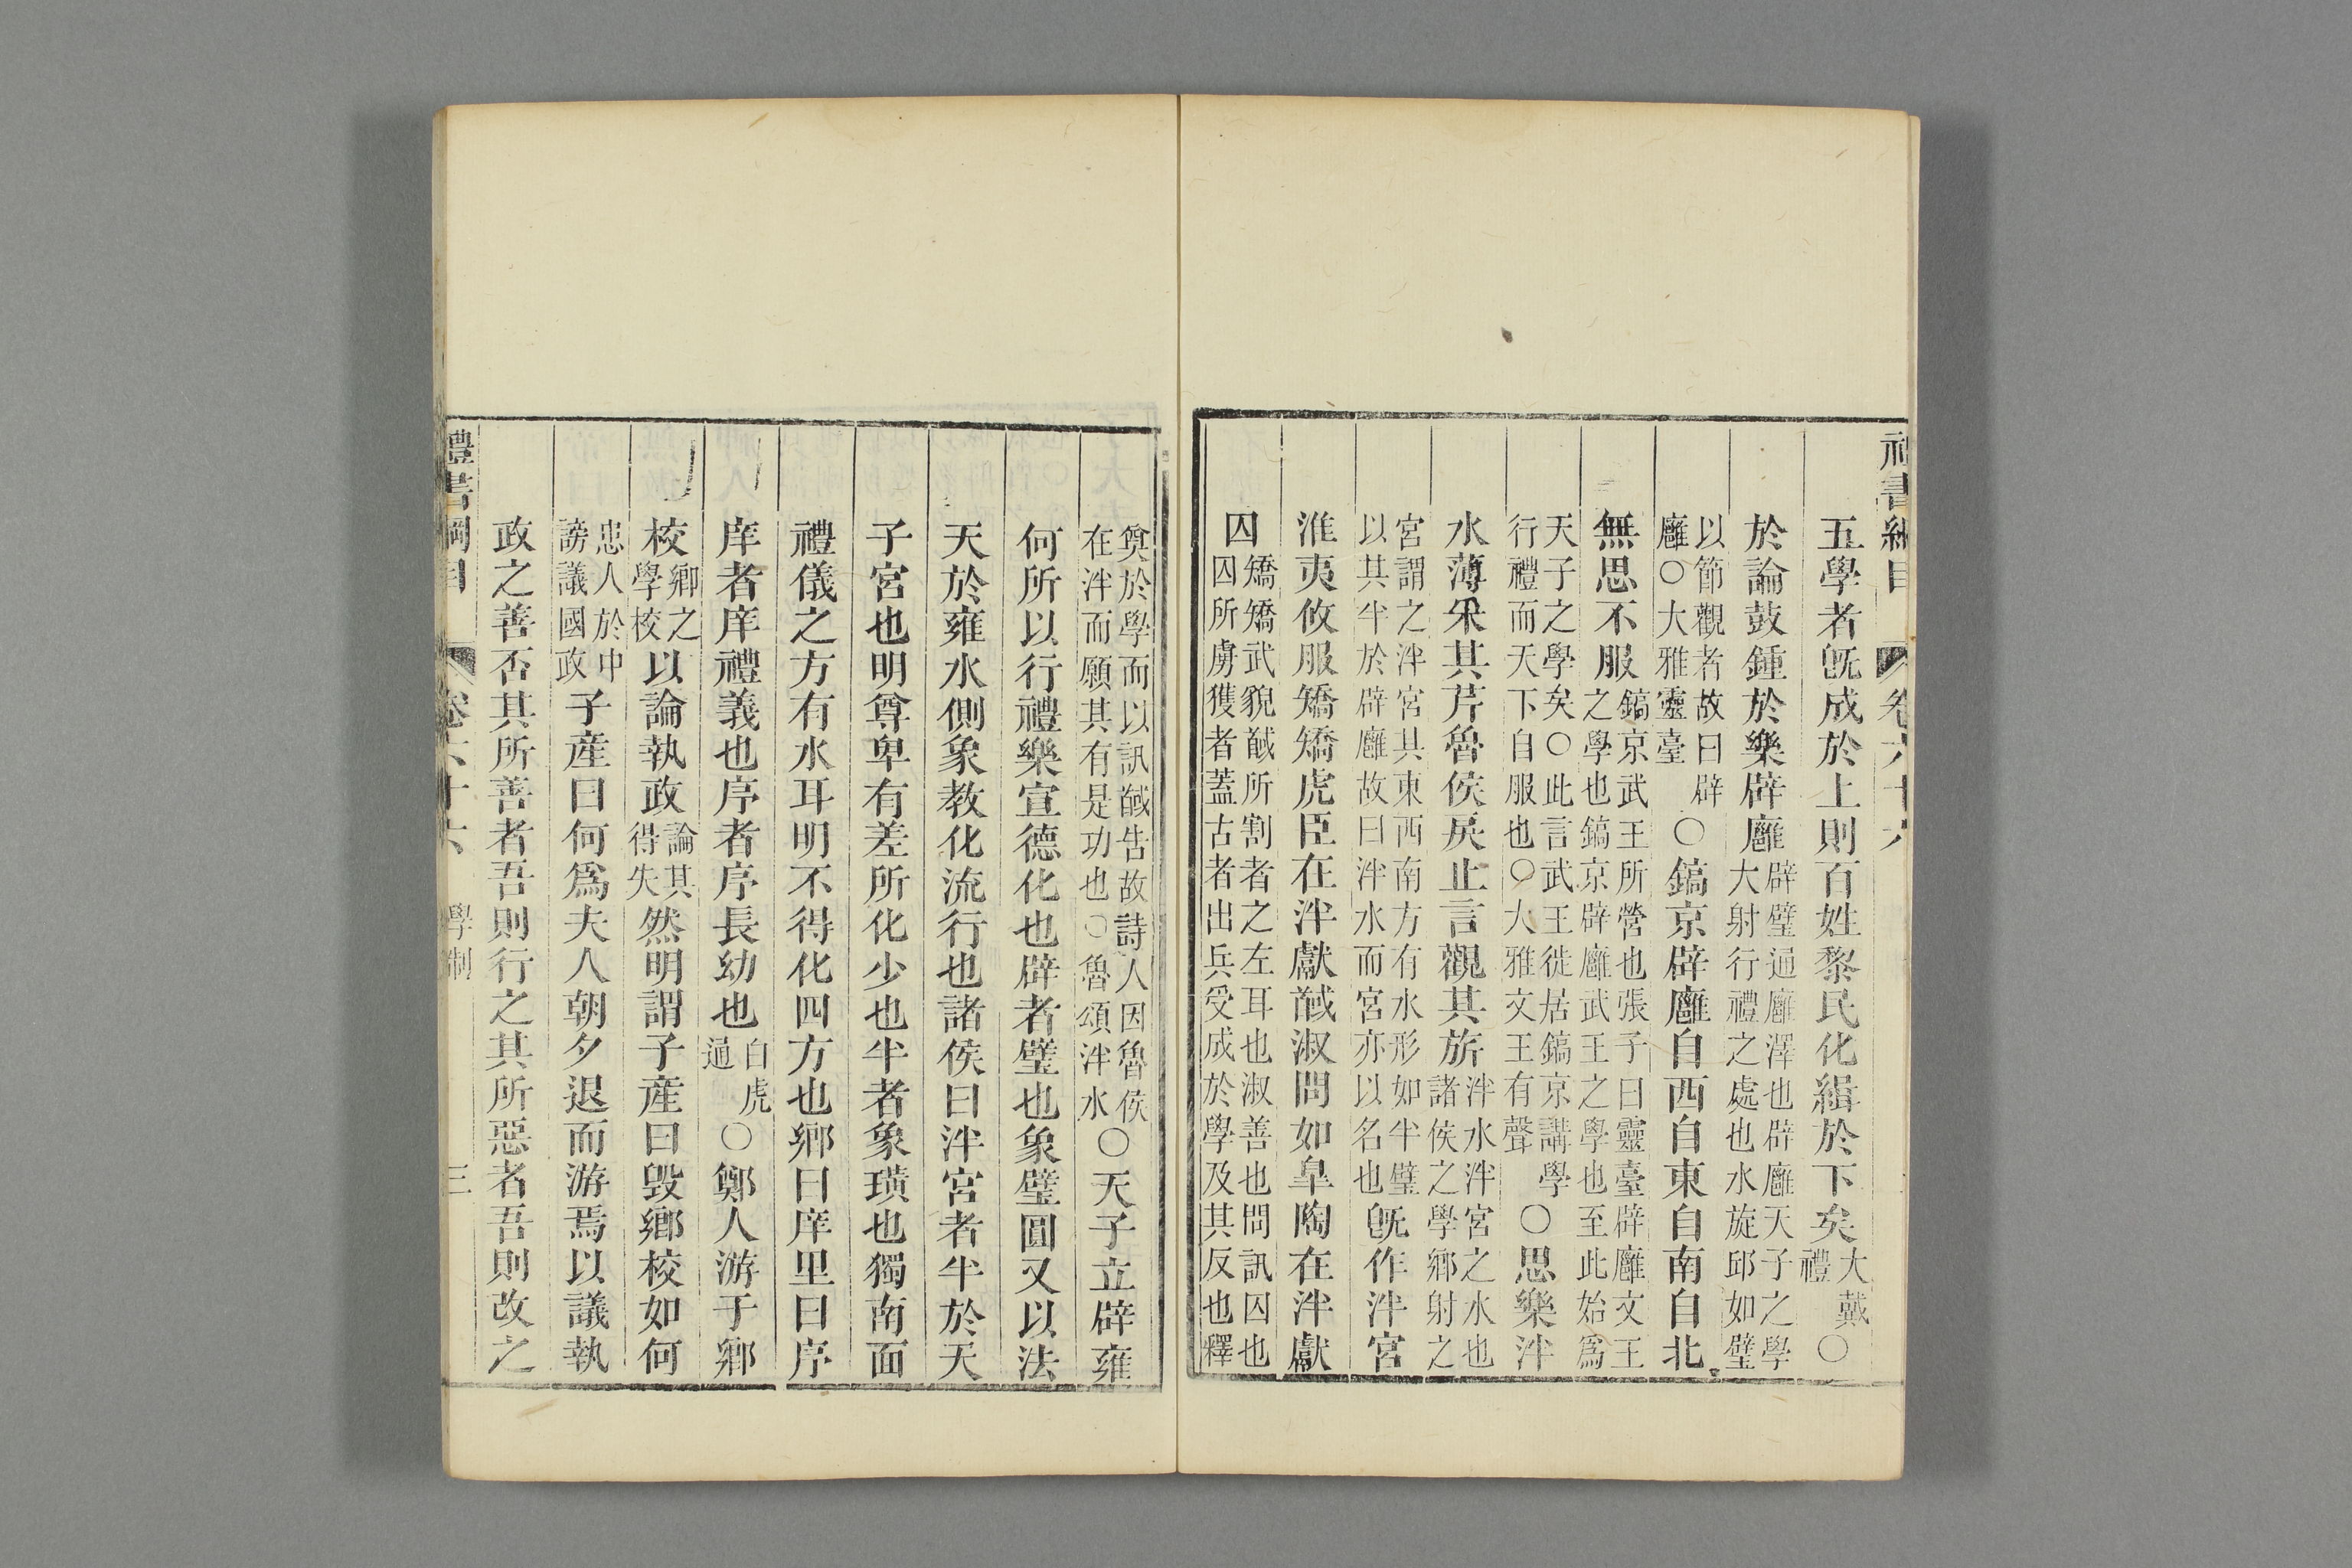 禮書綱目 卷六十六
五學者旣成於上則百姓黎民化緝於下矣大戴禮○
於論鼓鍾於樂辟廱辟璧通廱澤也辟廱天子之學大射行禮之處也水旋邱如璧
以節觀者故曰辟廱○大雅靈臺○鎬京辟廱自西自東自南自北
無思不服鎬京武王所營也張子曰靈臺辟廱文王之學也鎬京辟廱武王之學也至此始爲
天子之學矣○此言武王徙居鎬京講學行禮而天下自服也○大雅文王有聲○思樂泮
水薄采其芹魯侯戾止言觀其旂泮水泮宮之水也諸侯之學鄉射之
宮謂之泮宮其東西南方有水形如半璧以其半於辟廱故曰泮水而宮亦以名也旣作泮宮
淮夷攸服矯矯虎臣在泮獻馘淑問如皐陶在泮獻
囚矯矯武貌馘所割者之左耳也淑善也問訊囚也囚所虜獲者蓋古者出兵受成於學及其反也釋
奠於學而以訊馘告故詩人因魯侯在泮而願其有是功也○魯頌泮水○天子立辟雍
何所以行禮樂宣德化也辟者璧也象璧圓又以法
天於雍水側象教化流行也諸侯曰泮宮者半於天
子宮也明尊卑有差所化少也半者象璜也獨南面
禮儀之方有水耳明不得化四方也鄉曰庠里曰序
庠者庠禮義也序者序長幼也白虎通○鄭人游于鄉
校鄉之學校以論執政論其得失然明謂子產曰毀鄉校如何
患人於中謗議國政子產曰何爲夫人朝夕退而游焉以議執
政之善否其所善者吾則行之其所惡者吾則改之
禮書綱目 卷六十六 學制 三